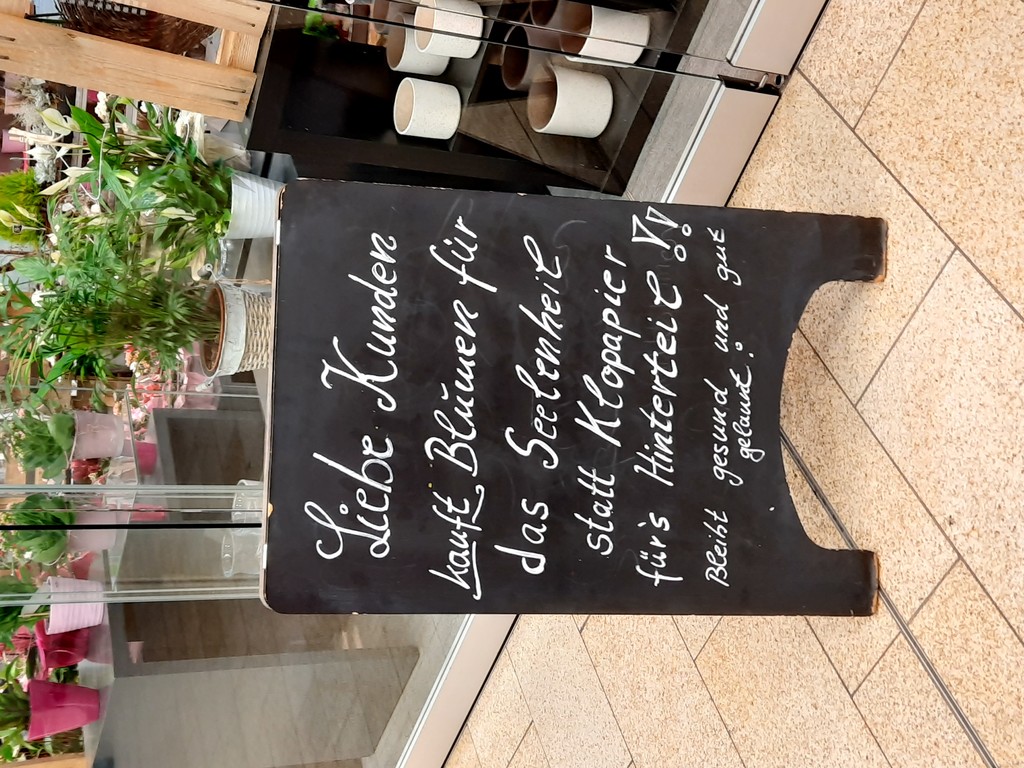 Liebe Kunden
kauft Blumen für
das Seelenheil
statt Klopapier
für's Hinterteil!!
Bleibt gesund und gut
gelaunt.